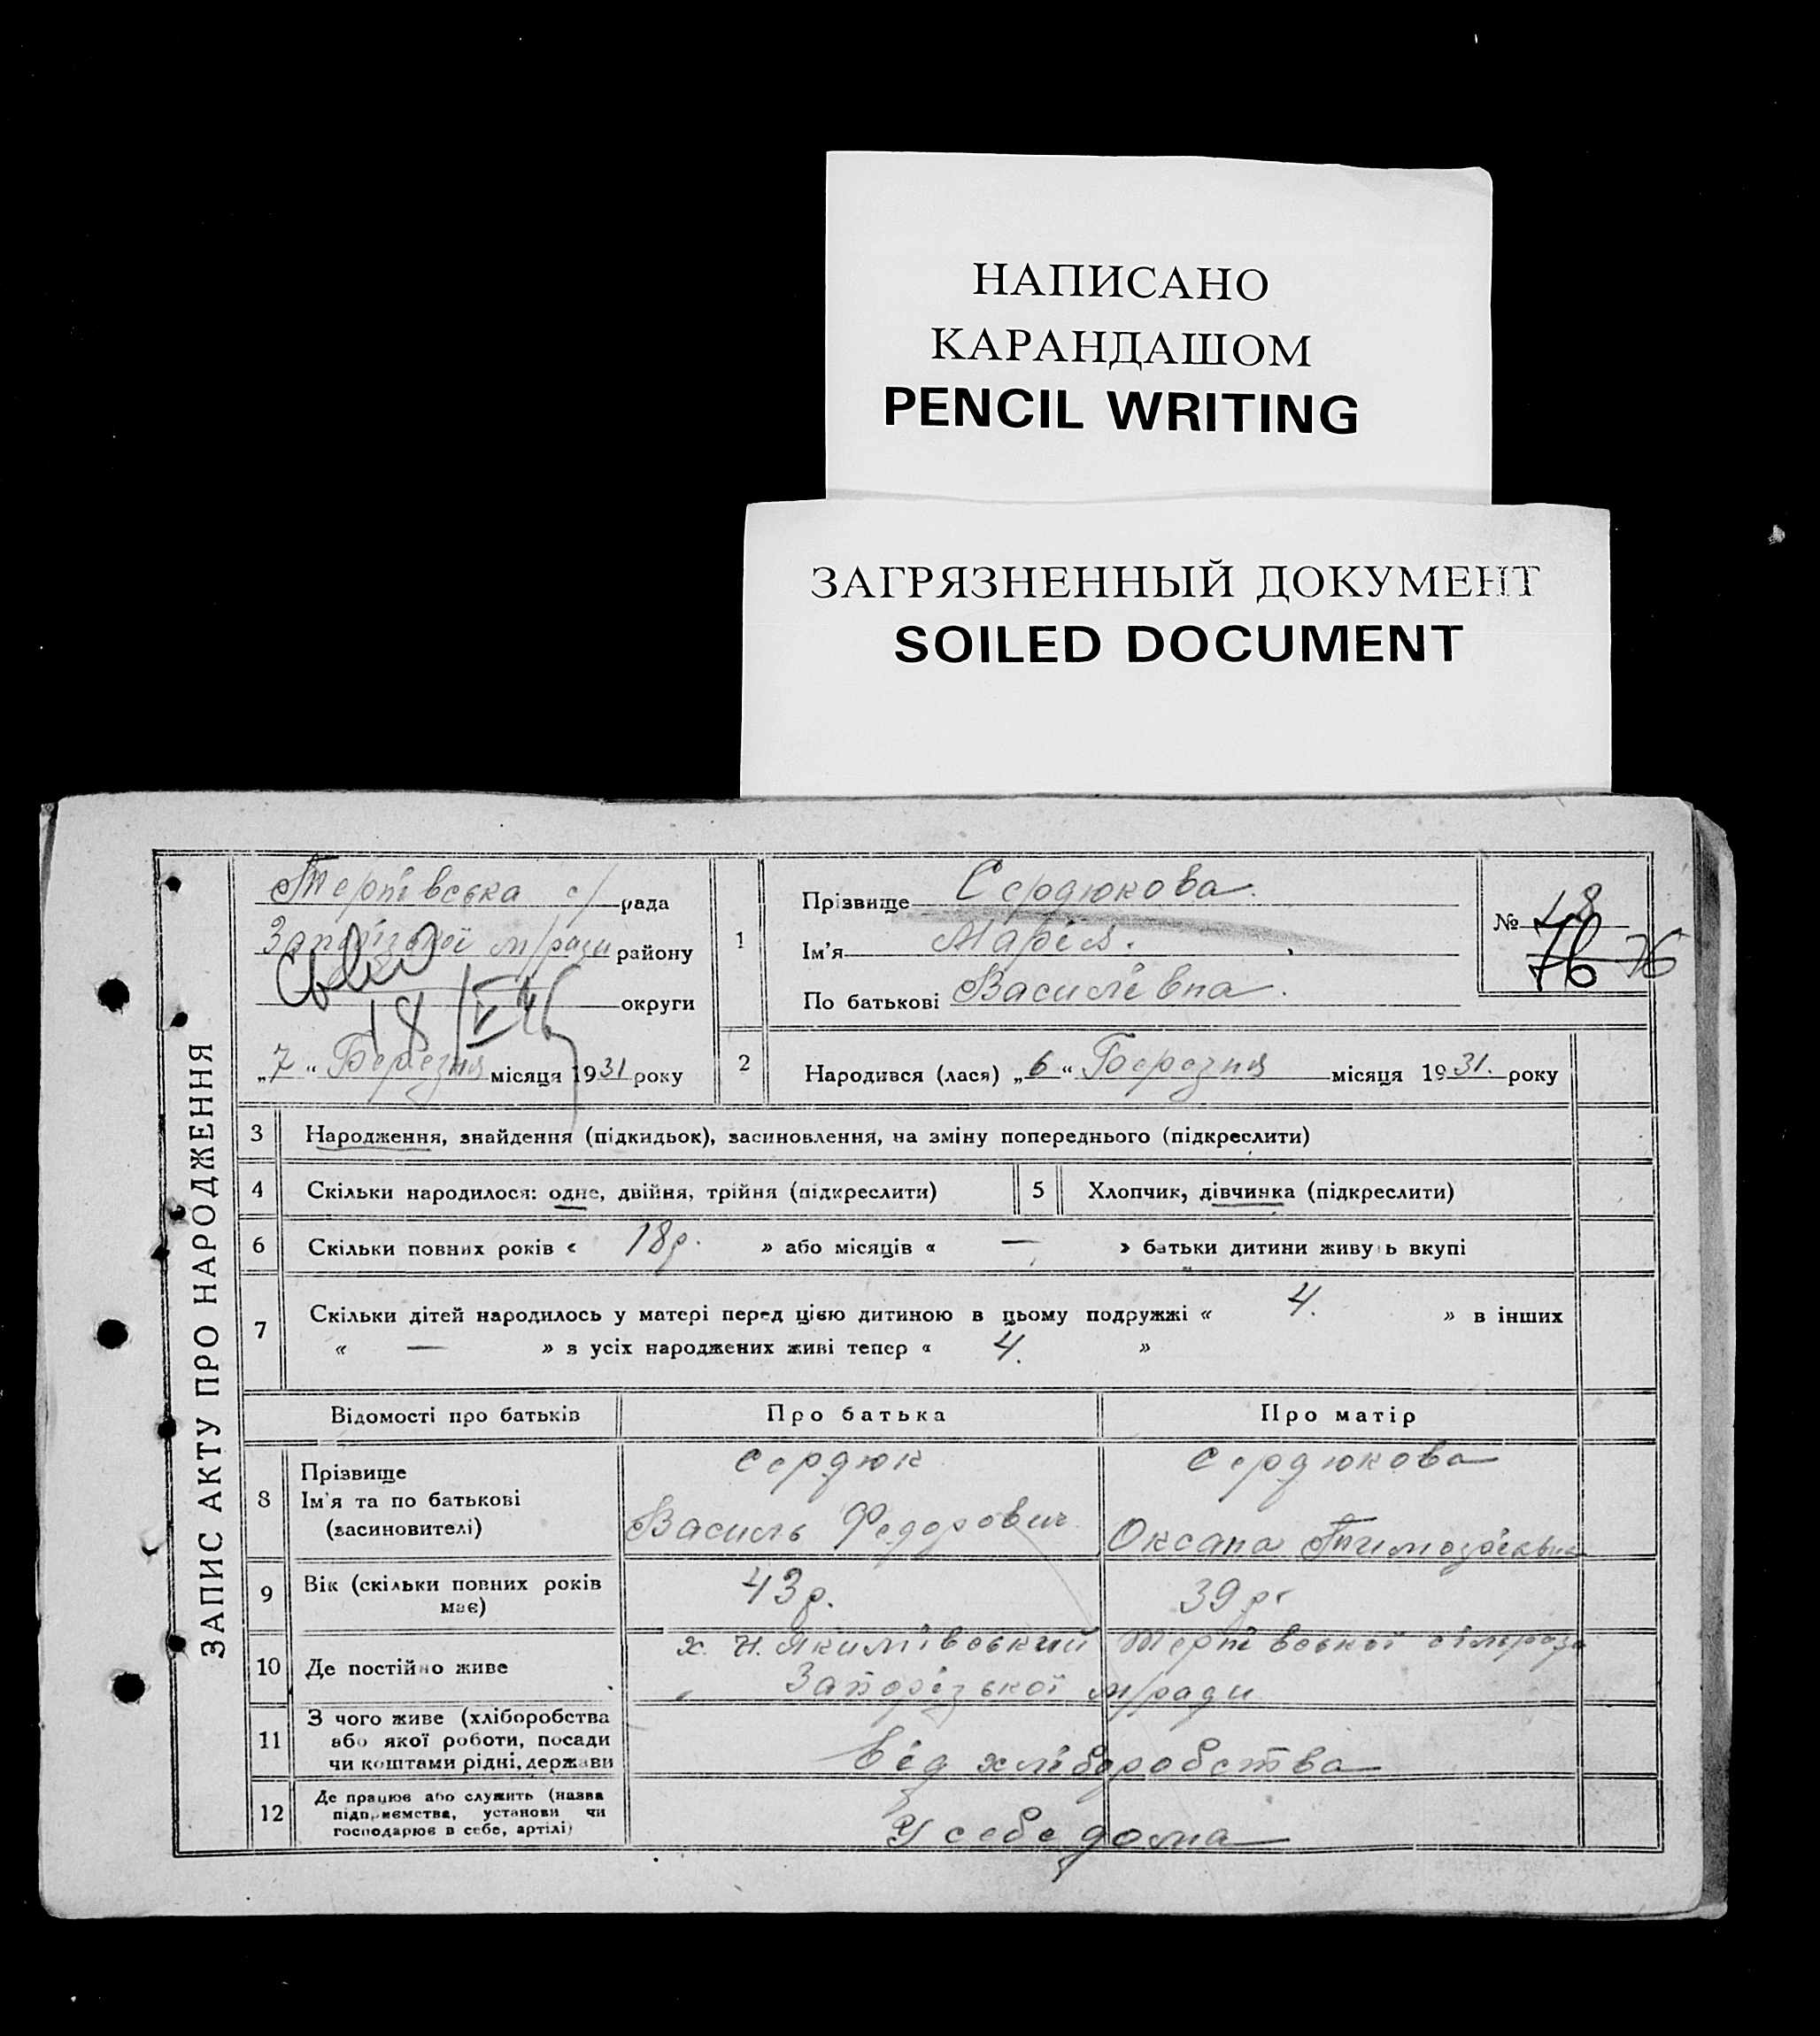 НАПИСАНО
КАРАНДАШОМ
PENCIL WRITING
ЗАГРЯЗНЕННЫЙ ДОКУМЕНТ
SOILED DOCUMENT
ЗАПИС АКТУ ПРО НАРОДЖЕННЯ
Терпівська с/рада
Запорізької м/ради району
округи
„7“ Березня місяця 1931 року
1
Прізвище Сердюкова.
Ім'я Марія.
По батькові Василівна.
№ 48
76 76
2 Народився (лася) „6“ Березня місяця 1931. року
3 Народження, знайдення (підкидьок), засиновлення, на зміну попереднього (підкреслити)
4 Скільки народилося: одне, двійня, трійня (підкреслити) 5 Хлопчик, дівчинка (підкреслити)
6 Скільки повних років « 18 р. » або місяців « — » батьки дитини живуть вкупі
7 Скільки дітей народилось у матері перед цією дитиною в цьому подружжі « 4. » в інших
« — » з усіх народжених живі тепер « 4. »
Відомості про батьків Про батька Про матір
8 Прізвище
Ім'я та по батькові
(засиновителі)
Сердюк Сердюкова
Василь Федорович Оксана
9 Вік (скільки повних років має) 43 р. 39 р.
10 Де постійно живе х. Н. Якимівський Терпівської сільради
Запорізької м/ради
11 З чого живе (хліборобства
або якої роботи, посади
чи коштами рідні, держави
Від хліборобства
12 Де працює або служить (назва
підприємства, установи чи
господарює в себе, артілі)
У себе дома